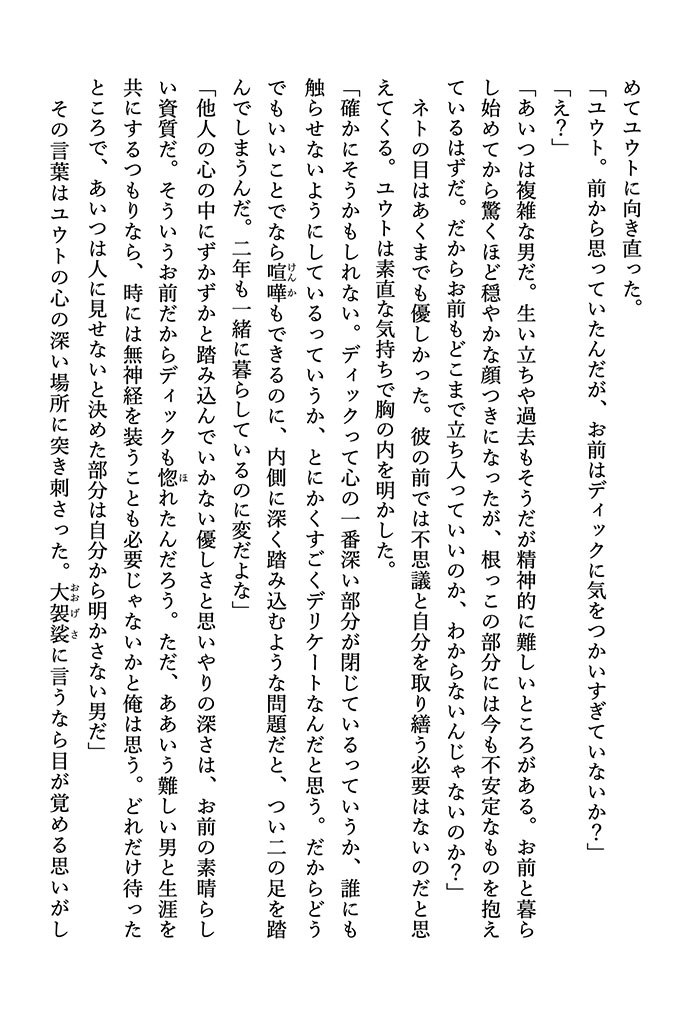 めてユウトに向き直った。
「ユウト。前から思っていたんだが、お前はディックに気をつかいすぎていないか？」
「え？」
「あいつは複雑な男だ。生い立ちや過去もそうだが精神的に難しいところがある。お前と暮ら
し始めてから驚くほど穏やかな顔つきになったが、根っこの部分には今も不安定なものを抱え
ているはずだ。だからお前もどこまで立ち入っていいのか、わからないんじゃないのか？」
ネトの目はあくまでも優しかった。彼の前では不思議と自分を取り繕う必要はないのだと思
えてくる。ユウトは素直な気持ちで胸の内を明かした。
「確かにそうかもしれない。ディックって心の一番深い部分が閉じているっていうか、誰にも
触らせないようにしているっていうか、とにかくすごくデリケートなんだと思う。だからどう
でもいいことでなら喧嘩もできるのに、内側に深く踏み込むような問題だと、つい二の足を踏
んでしまうんだ。二年も一緒に暮らしているのに変だよな」
「他人の心の中にずかずかと踏み込んでいかない優しさと思いやりの深さは、お前の素晴らし
い資質だ。そういうお前だからディックも惚れたんだろう。ただ、ああいう難しい男と生涯を
共にするつもりなら、時には無神経を装うことも必要じゃないかと俺は思う。どれだけ待った
ところで、あいつは人に見せないと決めた部分は自分から明かさない男だ」
その言葉はユウトの心の深い場所に突き刺さった。大袈裟に言うなら目が覚める思いがし
けんか
ほ
おおげさ